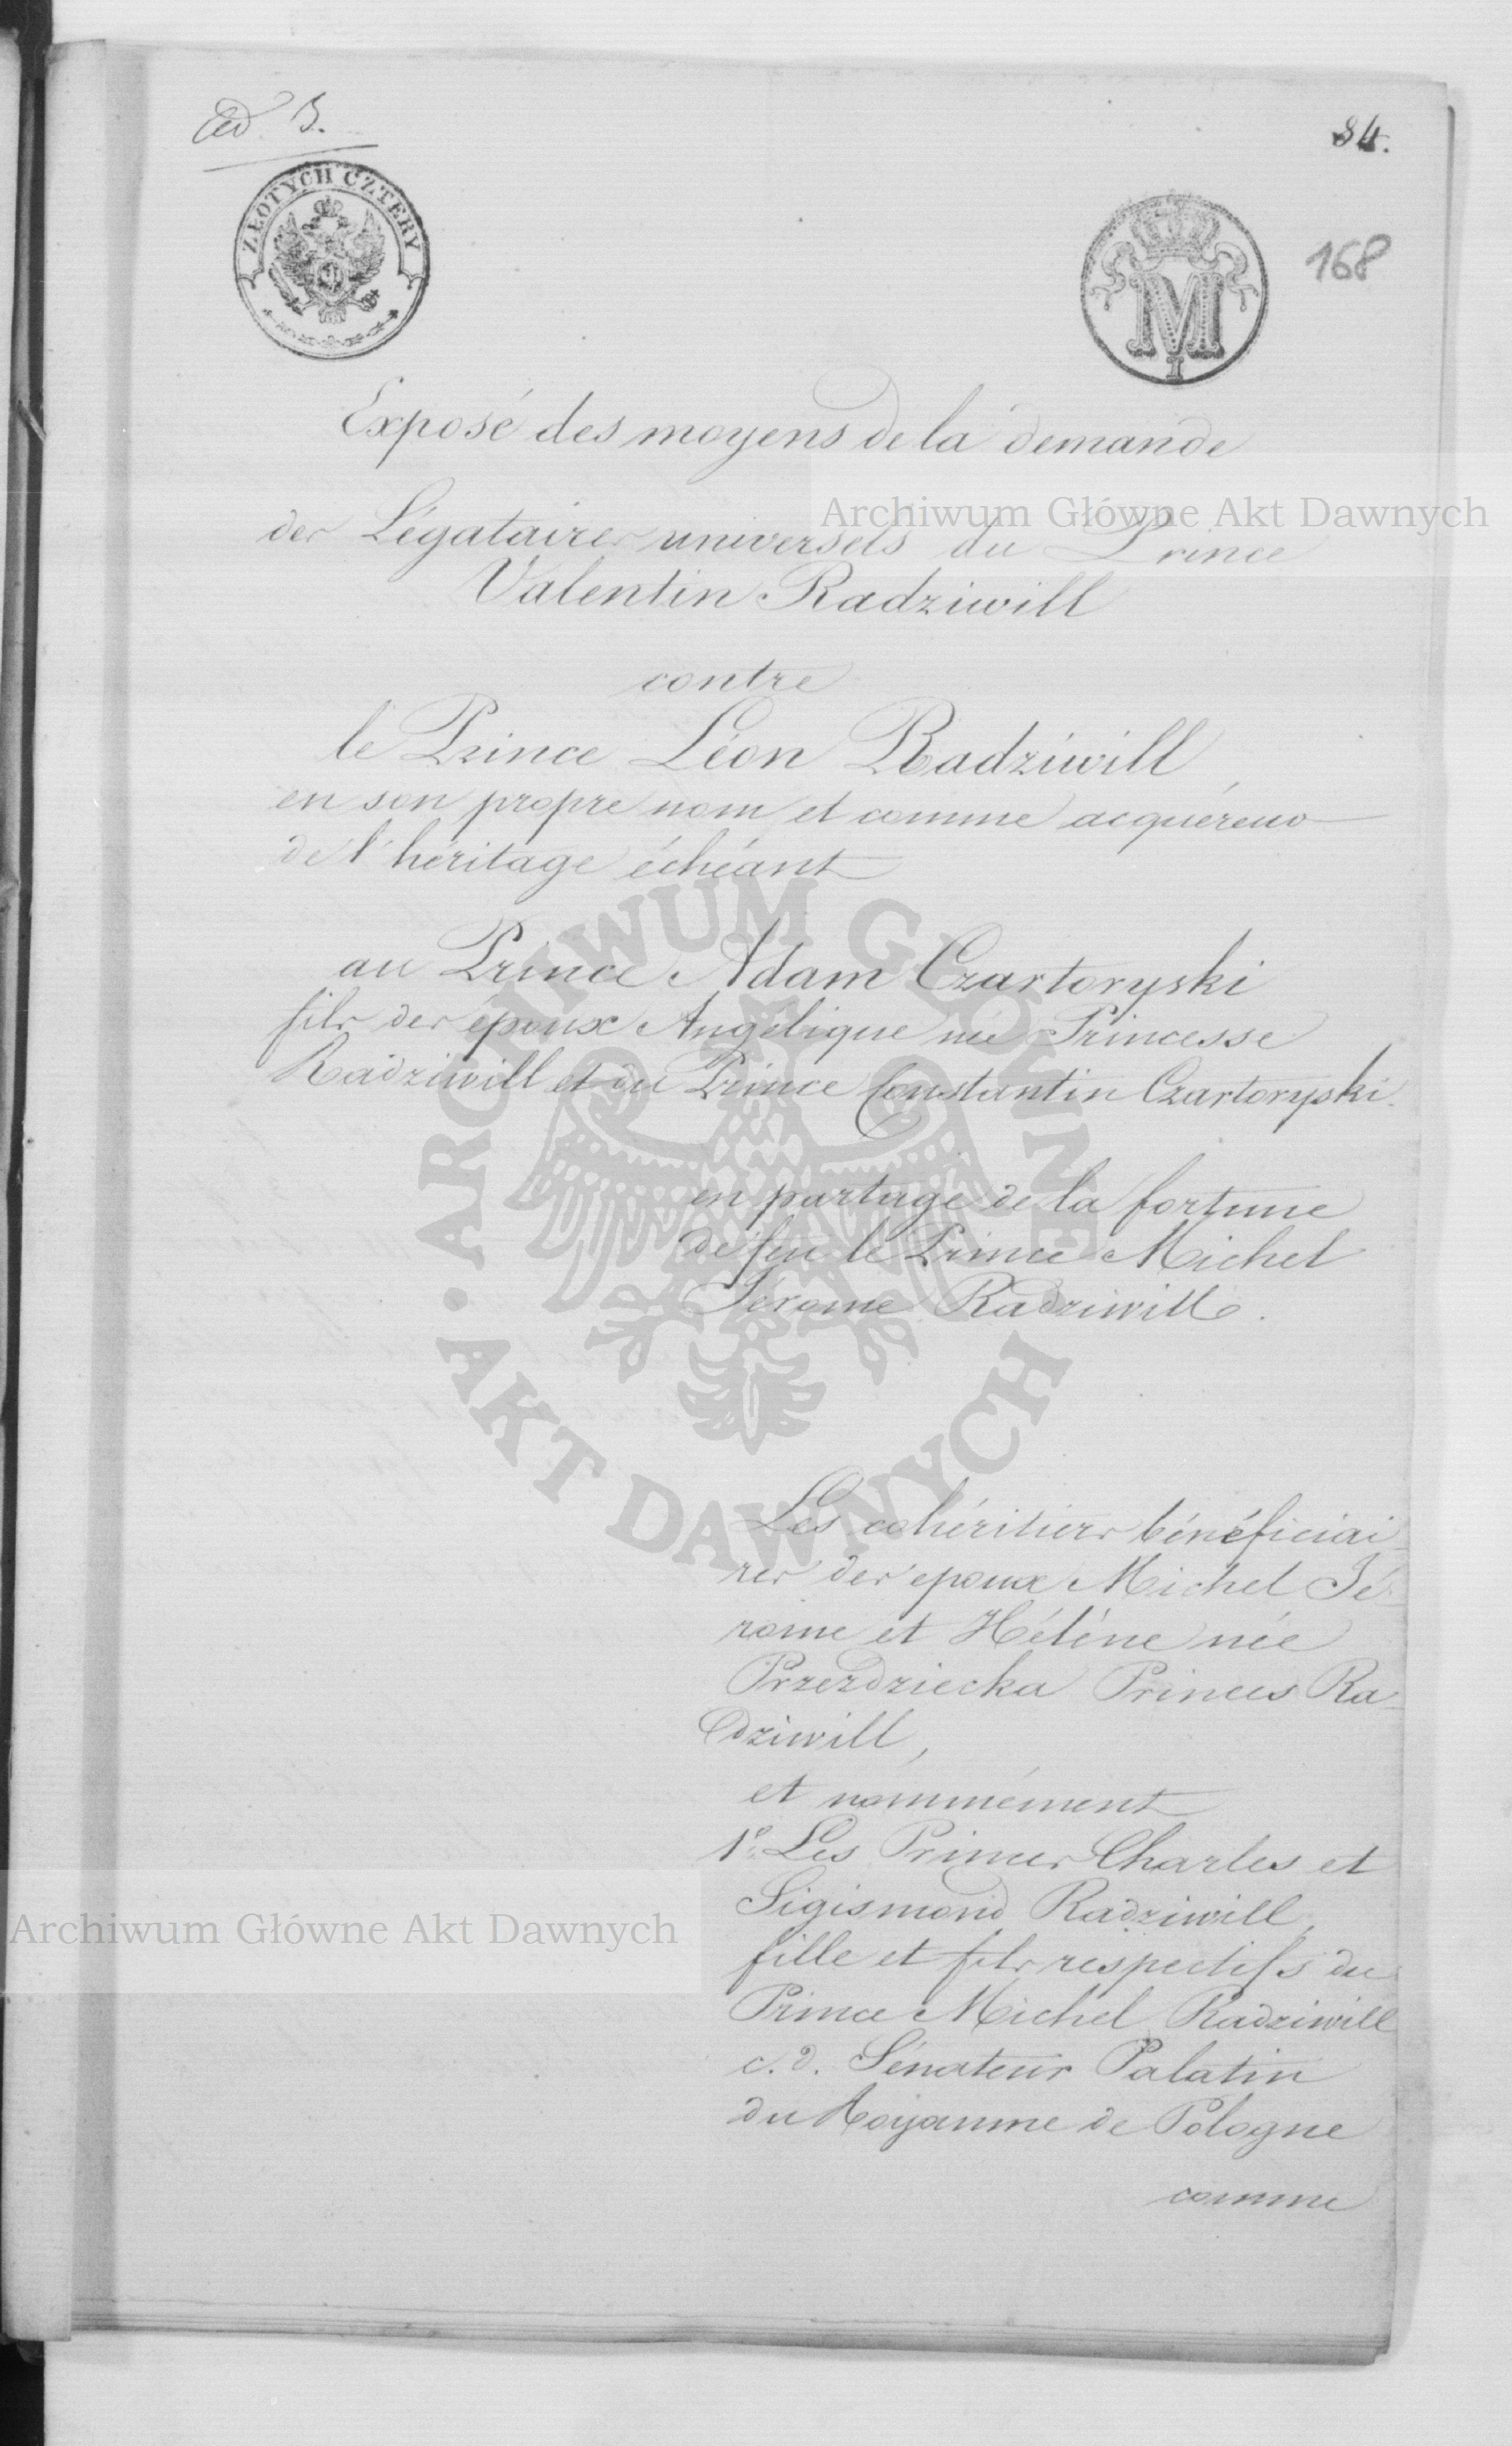 Ad B.
84.
ZŁOTYCH CZTERY
M
I
168
Exposé des moyens de la demande
des Légataires universels du Prince
Valentin Radziwill
contre
le Prince Léon Radziwill,
en son propre nom et comme acquéreur
de l'héritage échéant
au Prince Adam Czartoryski
fils des époux Angélique née Princesse
Radziwill et du Prince Constantin Czartoryski.
en partage de la fortune
de feu le Prince Michel
Jérome Radziwill.
Les cohéritiers bénéficiai-
res des epoux Michel Jé-
rome et Hélène née
Przezdziecka Princes Ra-
dziwill,
et nommément
1º Les Princes Charles et
Sigismond Radziwill,
fille et fils respectifs du
Prince Michel Radziwill
c. d. Sénateur Palatin
du Royaume de Pologne
comme
Archiwum Główne Akt Dawnych
ARCHIWUM GŁÓWNE
AKT DAWNYCH
Archiwum Główne Akt Dawnych